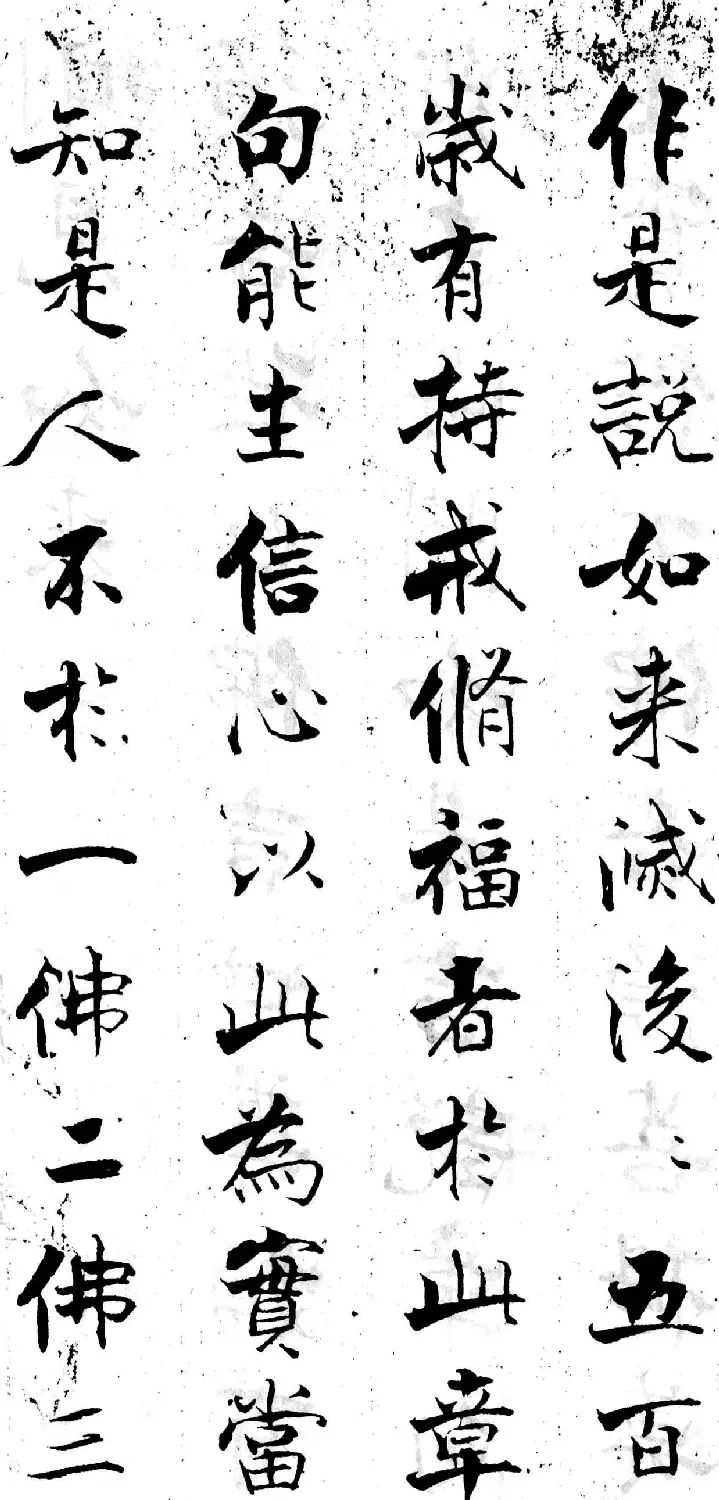 作是説如来滅後〻五百
歳有持戒脩福者於此章
句能生信心以此為實當
知是人不於一佛二佛三